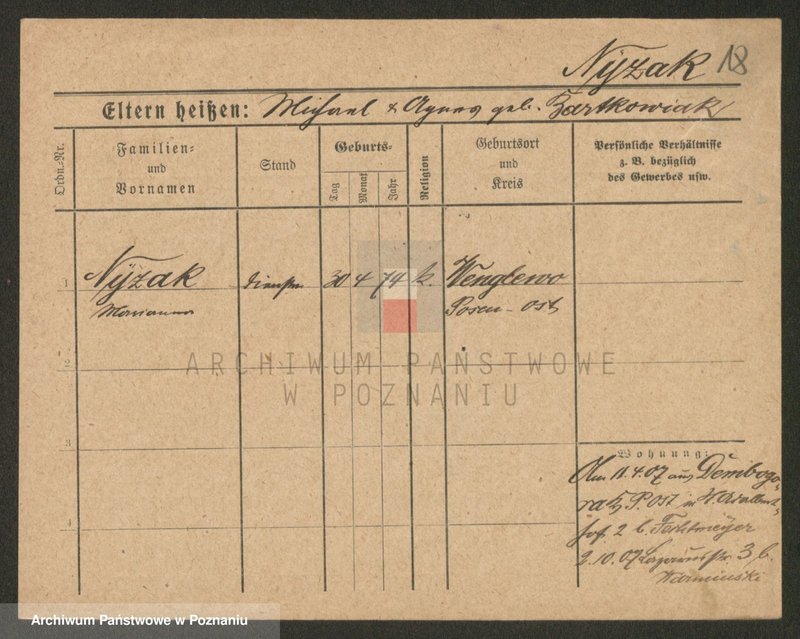 Nÿzak 18
Eltern heißen: Michael & Agnes geb. Bartkowiak
Ordn.-Nr.
Familien-
und
Vornamen
Stand
Geburts-
Tag
Monat
Jahr
Religion
Geburtsort
und
Kreis
Persönliche Verhältnisse
z. B. bezüglich
des Gewerbes usw.
1 Nÿzak 30 4 74 k. Wenglewo
Marianna Posen-Ost
ARCHIWUM PAŃSTWOWE
W POZNANIU
2
3
4
Wohnung:
11.4.07 aus Dembogo-
ra P. Ost in
hof 2 b.
2.10.07 3 b.
Kaminski
Archiwum Państwowe w Poznaniu